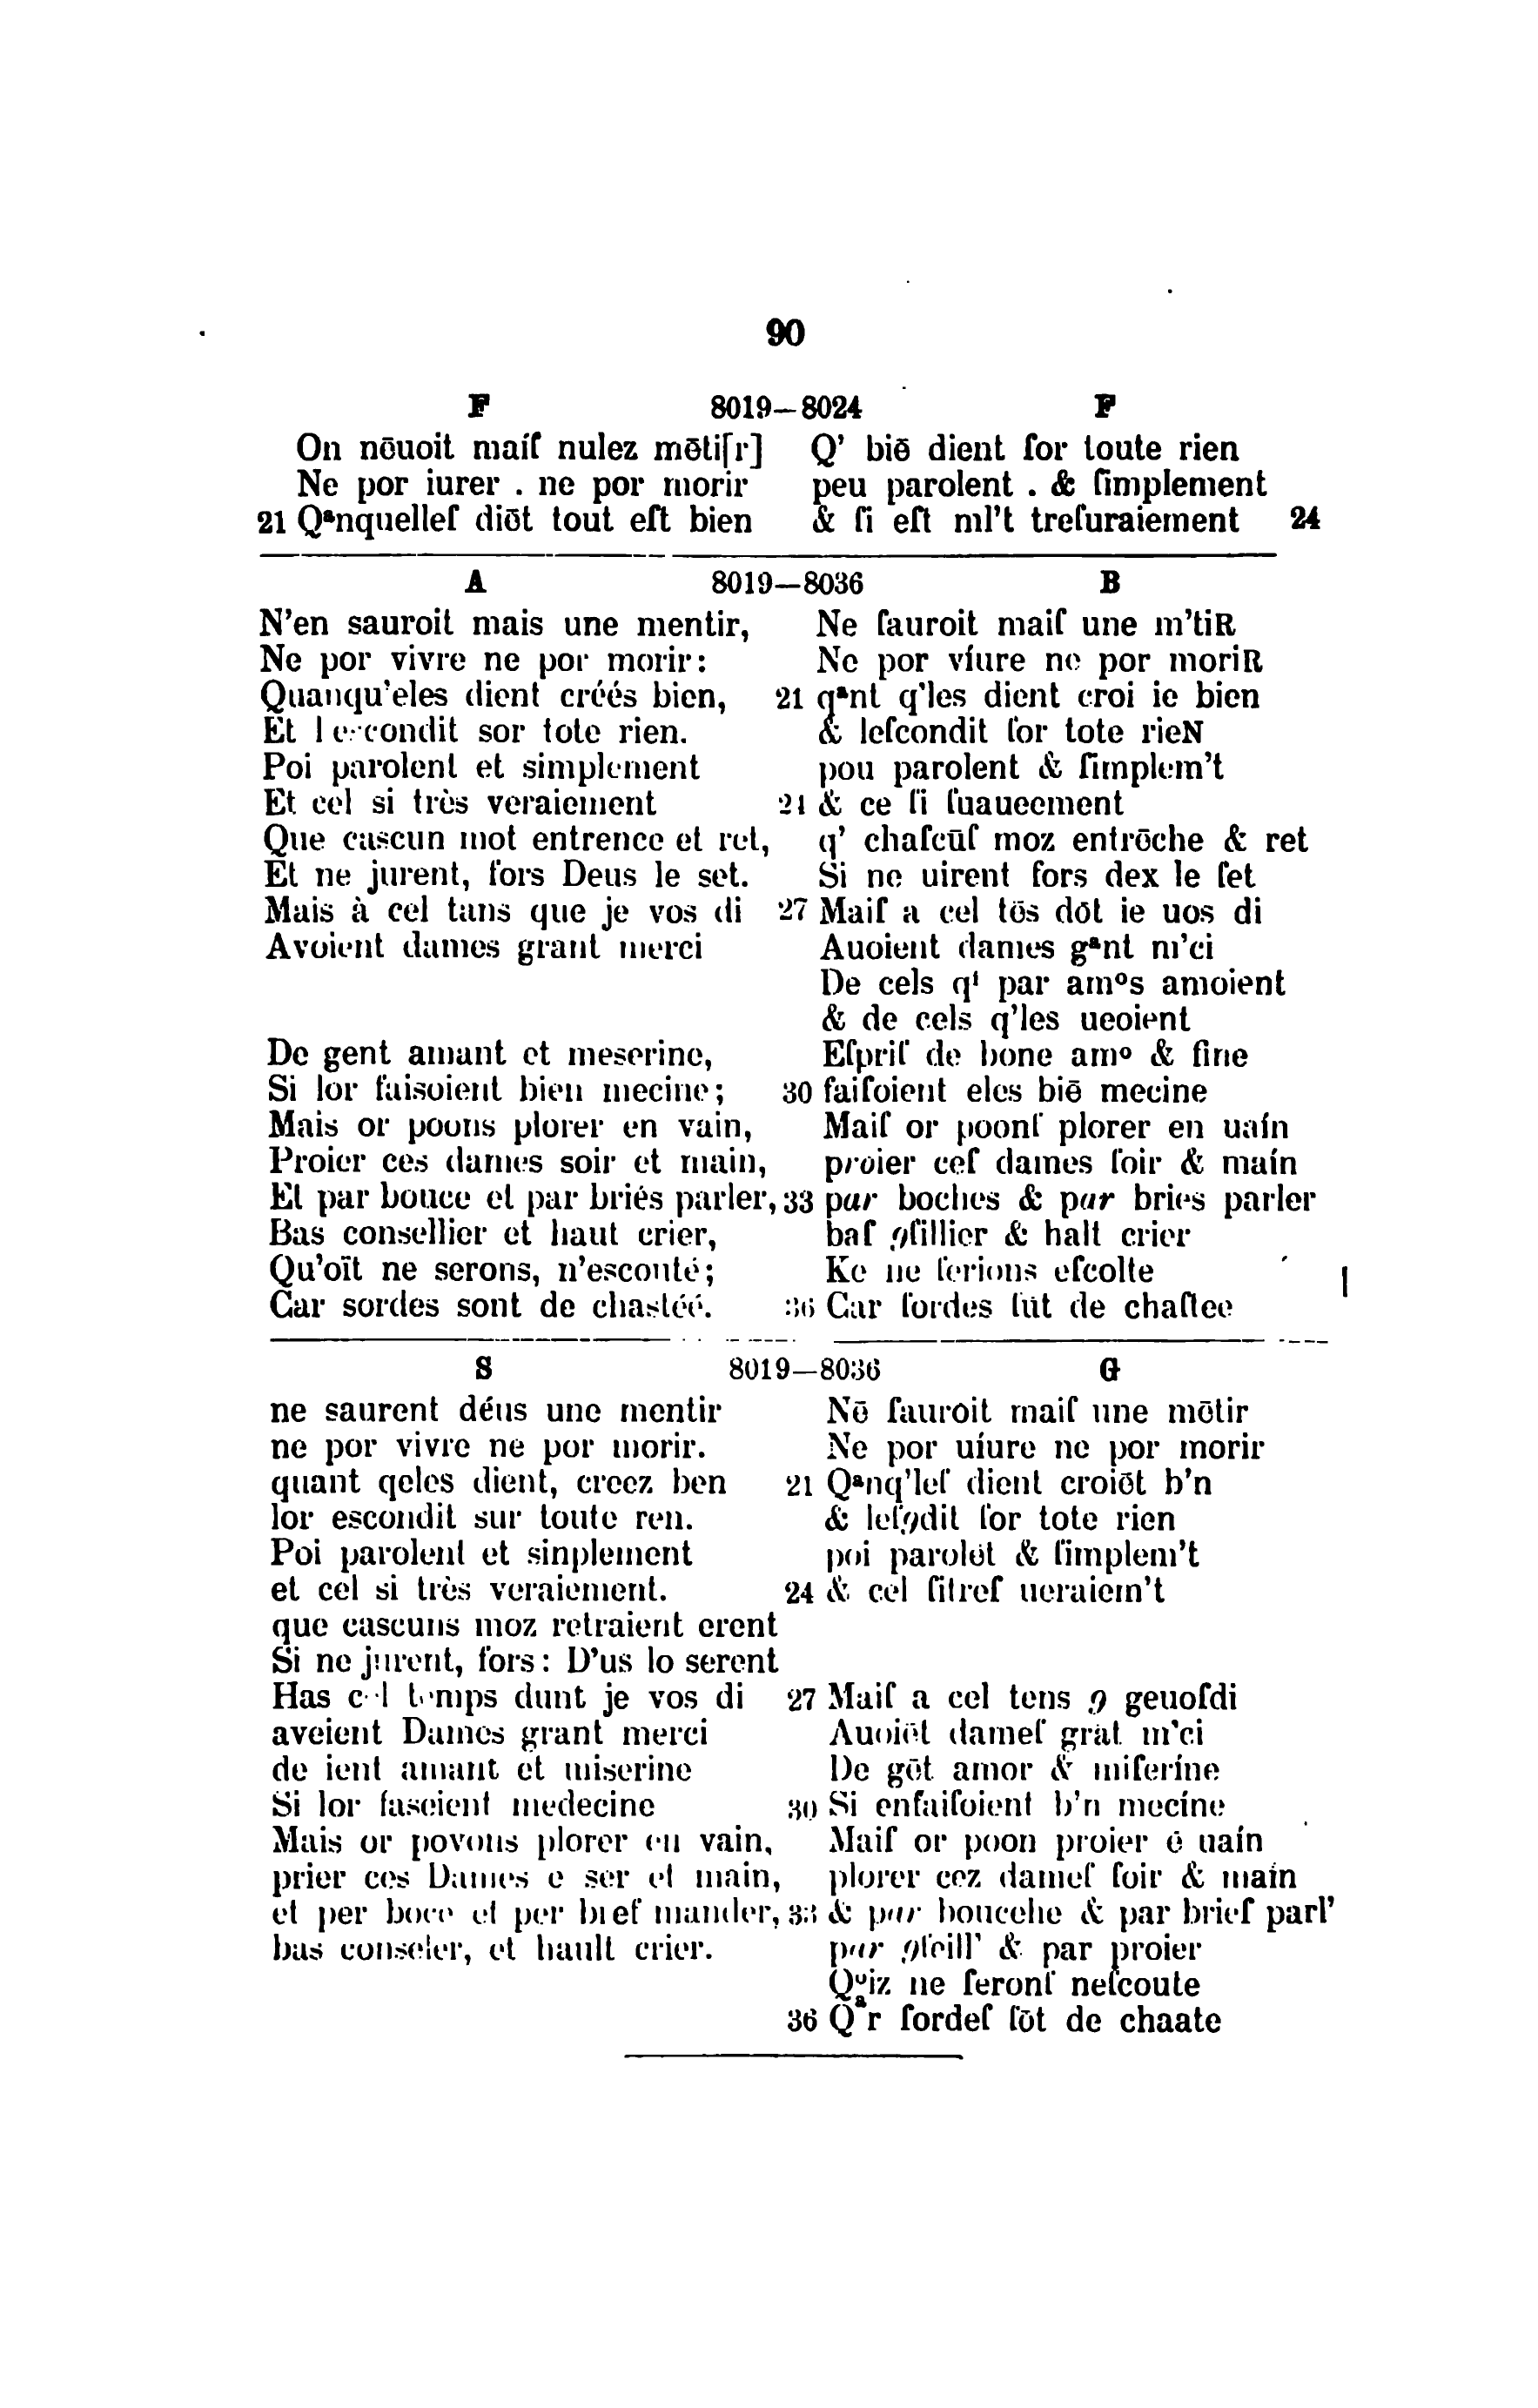 90
F 8019—8024 F
On nōuoit maíſ nulez mēti[r]
Ne por iurer . ne por morir
21 Qᵃnquelleſ diōt tout eſt bien
Q’ biē dient ſor toute rien
peu parolent . & ſimplement
& ſi eſt ml’t treſuraiement 24
A 8019—8036 B
N’en sauroit mais une mentir,
Ne por vivre ne por morir:
Quanqu’eles dient créés bien,
Et l escondit sor tote rien.
Poi parolent et simplement
Et cel si très veraiement
Que cascun mot entrence et ret,
Et ne jurent, fors Deus le set.
Mais à cel tans que je vos di
Avoient dames grant merci
De gent amant et meserine,
Si lor faisoient bien mecine;
Mais or poons plorer en vain,
Proier ces dames soir et main,
Et par bouce et par briés parler,
Bas consellier et haut crier,
Qu’oït ne serons, n’esconté;
Car sordes sont de chastéé.
Ne ſauroit maiſ une m’tiR
Ne por víure ne por moriR
21 qᵃnt q’les dient croi ie bien
& leſcondit ſor tote rieN
pou parolent & ſimplem’t
24 & ce ſi ſuaueement
q’ chaſcūſ moz entrōche & ret
Si ne uirent fors dex le ſet
27 Maiſ a cel tēs dōt ie uos di
Auoient dames gᵃnt m’ci
De cels qⁱ par amᵒs amoient
& de cels q’les ueoient
Eſpriſ de bone amᵒ & fine
30 faiſoient eles biē mecine
Maiſ or poonſ plorer en uaín
proier ceſ dames ſoir & maín
33 par boches & par bries parler
baſ ꝯſillier & halt crier
Ke ne ſerions eſcolte
36 Car ſordes ſūt de chaſtee
S 8019—8036 G
ne saurent déus une mentir
ne por vivre ne por morir.
quant qeles dient, creez ben
lor escondit sur toute ren.
Poi parolent et sinplement
et cel si très veraiement.
que cascuns moz retraient erent
Si ne jurent, fors: D’us lo serent
Has cel temps dunt je vos di
aveient Dames grant merci
de ient amant et miserine
Si lor faseient medecine
Mais or povons plorer en vain,
prier ces Dames e ser et main,
et per boce et per bief mander,
bas conseler, et hault crier.
Nē ſauroit maiſ une mētir
Ne por uíure ne por morir
21 Qᵃnq’leſ dient croiēt b’n
& leſꝯdit ſor tote rien
poi parolēt & ſimplem’t
24 & cel ſitreſ ueraiem’t
27 Maiſ a cel tens ꝯ geuoſdi
Auoiēt dameſ grāt m’ci
De gēt amor & miſeríne
30 Si enfaiſoient b’n mecíne
Maiſ or poon proier ē uaín
plorer cez dameſ ſoir & maín
33 & par boucche & par brieſ parl’
par ꝯſeill’ & par proier
Qᵘiz ne ſeronſ neſcoute
36 Qᵃr ſordeſ ſōt de chaate